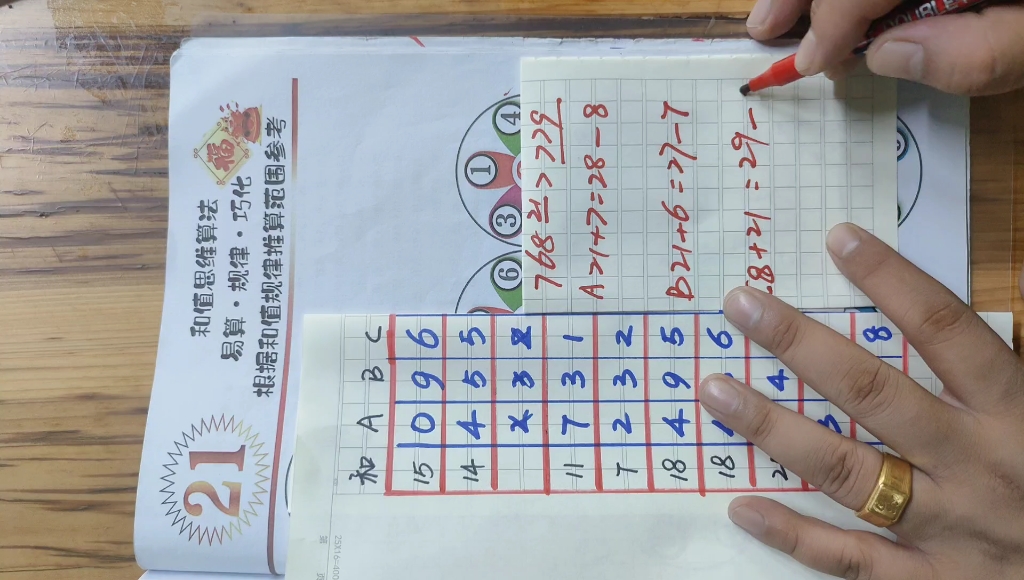 21
福
和值思维算法
易算·规律·巧化
根据和值规律推算范围参考
1
4
3
6
768 21 > 729
A 21+7=28-8
B 21+6=27-7
8+21=29-
和 A B C
15 0 9 6
14 4 5 5
11 7 3 1
7 2 3 2
18 4 9 5
18 6
4
3
8